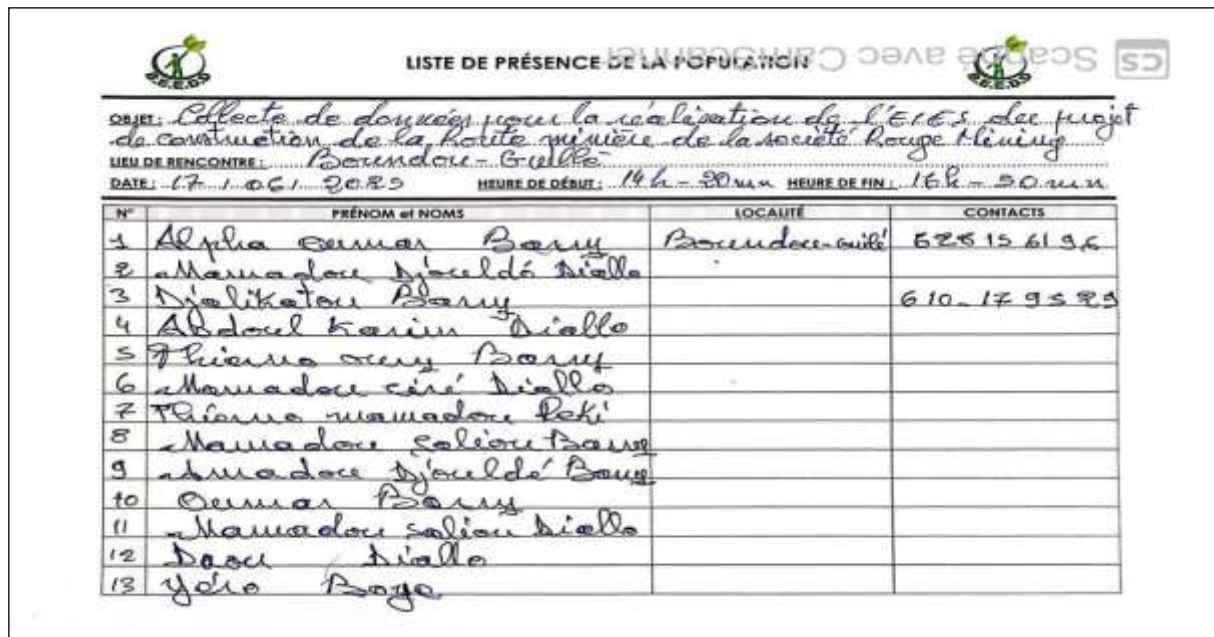 S.E.E.D.S
LISTE DE PRÉSENCE DE LA POPULATION
CS Scanné avec CamScanner
OBJET: Collecte de données pour la réalisation de l'EIES du projet
de construction de la Route minière de la société Rouge Mining
LIEU DE RENCONTRE:
DATE: 17 / 06 / 2025 HEURE DE DÉBUT: 14h - 20mn HEURE DE FIN: 16h - 50mn
N° PRÉNOM et NOMS LOCALITÉ CONTACTS
1 Alpha oumar Barry 628 15 61 96
2 Mamadou Djouldé Diallo
3 Djalikatou Barry 610-17 95 29
4 Abdoul Karim Diallo
5 Thierno oury Barry
6 Mamadou ciré Diallo
7 Thierno mamadou
8 Mamadou saliou Barry
9 Amadou Djouldé Barry
10 Oumar Barry
11 Mamadou saliou Diallo
12 Daou Diallo
13 Yéro